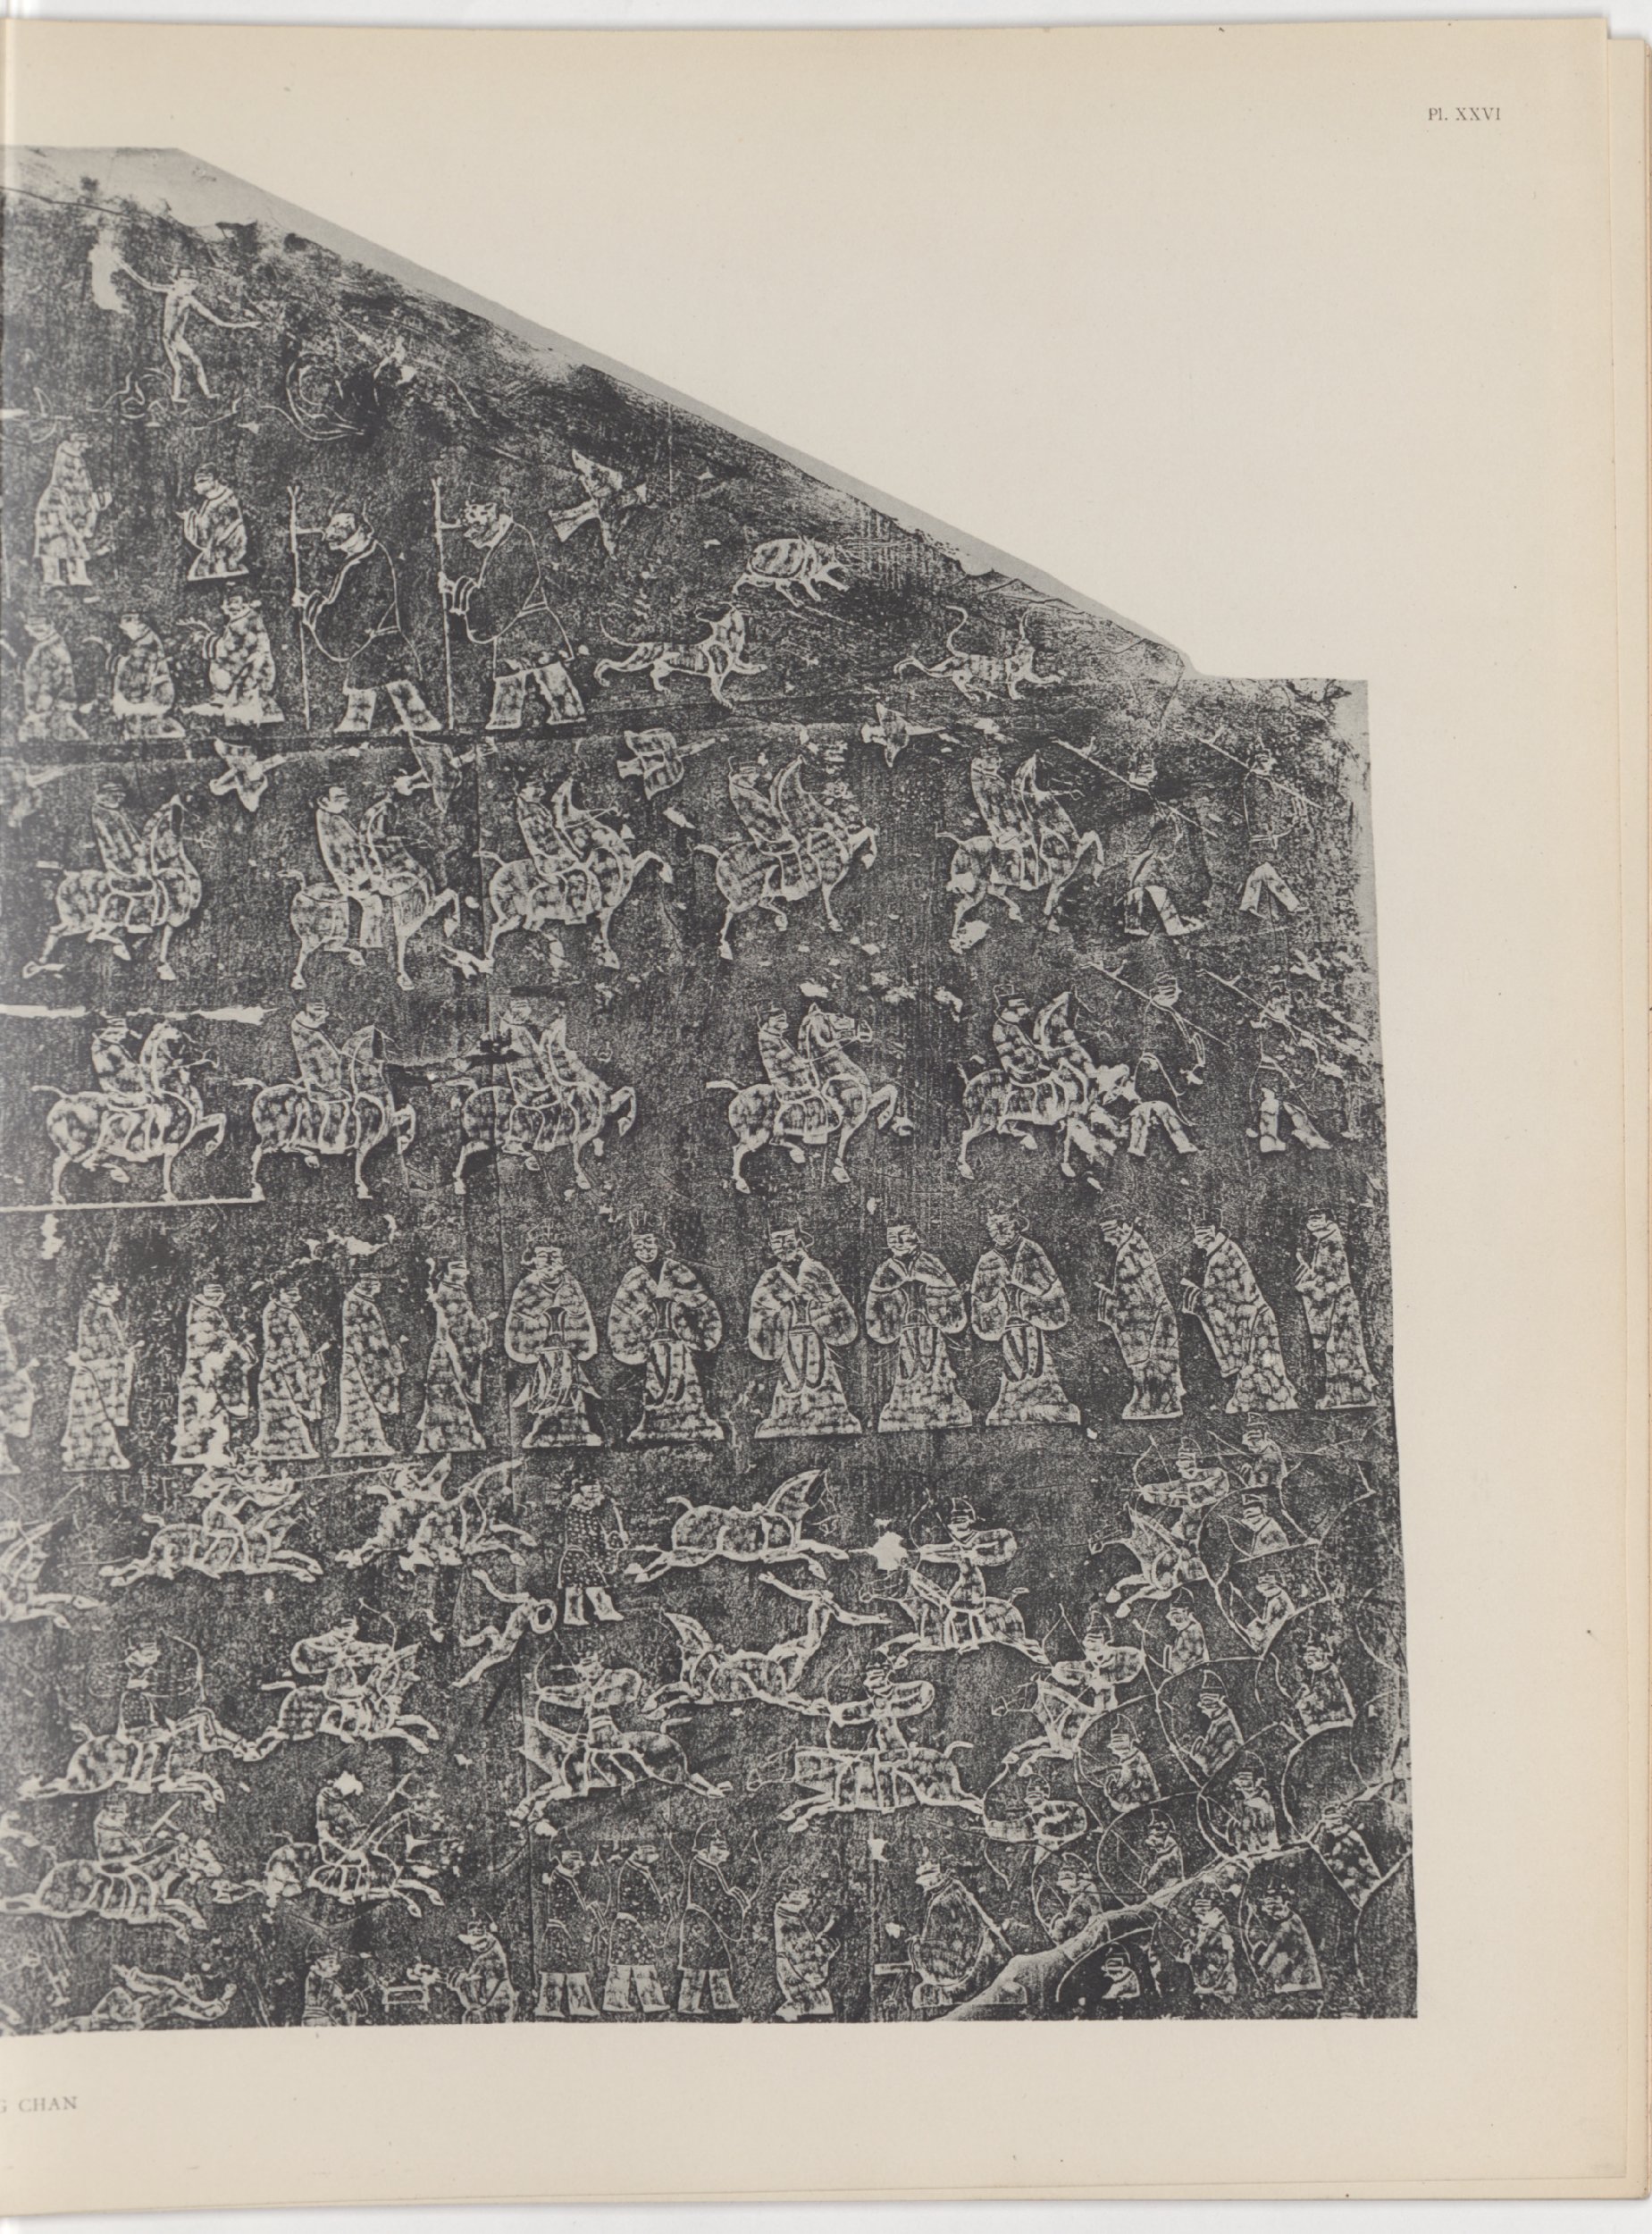 Pl. XXVI
G CHAN